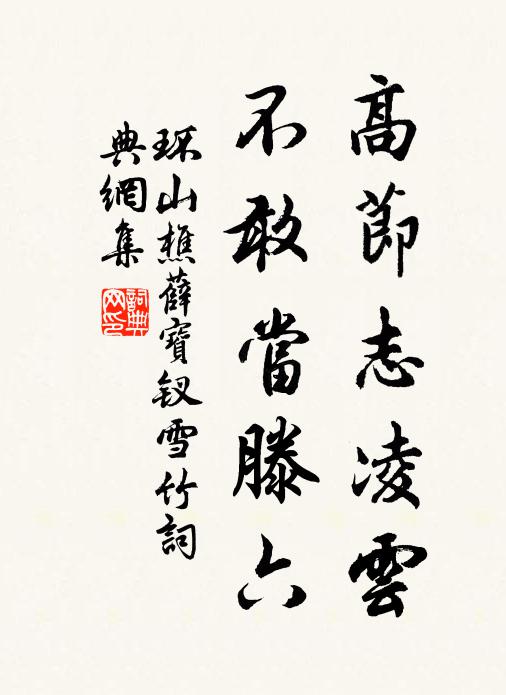 高節志凌雲
不敢當滕六
环山樵薛寶釵雪竹詞
典網集
詞典
网印